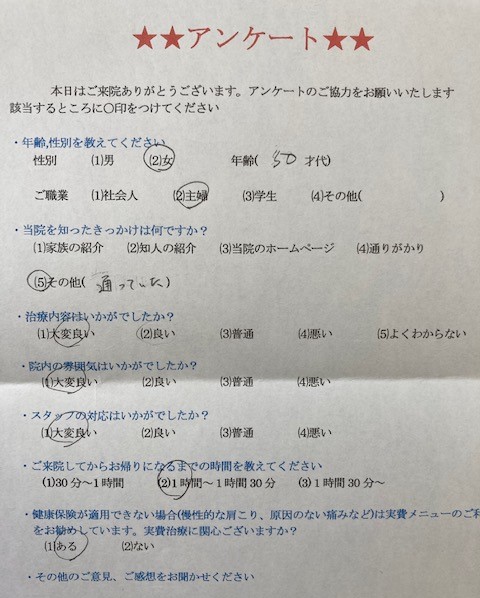 ★★アンケート★★
本日はご来院ありがとうございます。アンケートのご協力をお願いいたします
該当するところに〇印をつけてください
・年齢,性別を教えてください
性別 (1)男 (2)女 年齢( 50 才代)
ご職業 (1)社会人 (2)主婦 (3)学生 (4)その他( )
・当院を知ったきっかけは何ですか？
(1)家族の紹介 (2)知人の紹介 (3)当院のホームページ (4)通りがかり
(5)その他( 通っていた )
・治療内容はいかがでしたか？
(1)大変良い (2)良い (3)普通 (4)悪い (5)よくわからない
・院内の雰囲気はいかがでしたか？
(1)大変良い (2)良い (3)普通 (4)悪い
・スタッフの対応はいかがでしたか？
(1)大変良い (2)良い (3)普通 (4)悪い
・ご来院してからお帰りになるまでの時間を教えてください
(1)30分～1時間 (2)1時間～1時間30分 (3)1時間30分～
・健康保険が適用できない場合(慢性的な肩こり、原因のない痛みなど)は実費メニューのご利
をお勧めしています。実費治療に関心ございますか？
(1)ある (2)ない
・その他のご意見、ご感想をお聞かせください